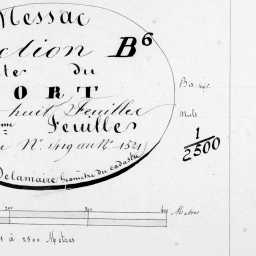 Messac
ction B6
te du
ORT
huit Feuilles
me Feuille
Nº 1119 au Nº 1521
Delamaire Géomètre du cadastre
1/2500
Metres
1 à 2500 Metres